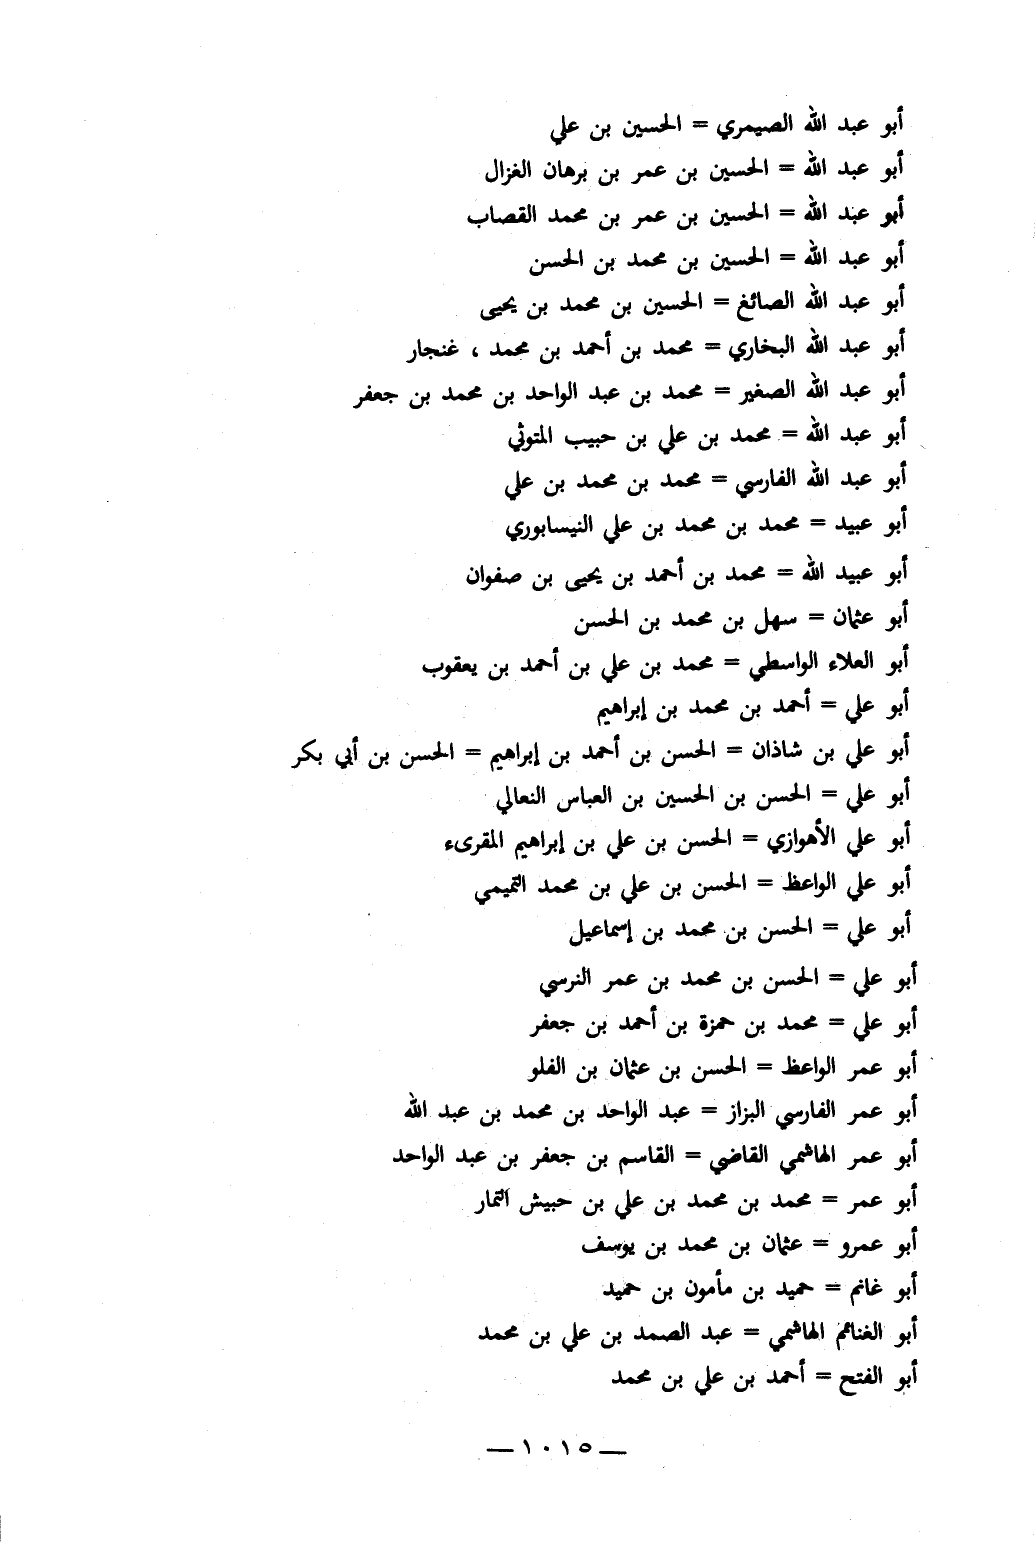 أبو عبد الله الصيمري = الحسين بن علي
أبو عبد الله = الحسين بن عمر بن برهان الغزال
أبو عبد الله = الحسين بن عمر بن محمد القصاب
أبو عبد الله = الحسين بن محمد بن الحسن
أبو عبد الله الصائغ = الحسين بن محمد بن يحيى
أبو عبد الله البخاري = محمد بن أحمد بن محمد ، غنجار
أبو عبد الله الصغير = محمد بن عبد الواحد بن محمد بن جعفر
أبو عبد الله = محمد بن علي بن حبيب المتوثي
أبو عبد الله الفارسي = محمد بن محمد بن علي
أبو عبيد = محمد بن محمد بن علي النيسابوري
أبو عبيد الله = محمد بن أحمد بن يحيى بن صفوان
أبو عثمان = سهل بن محمد بن الحسن
أبو العلاء الواسطي = محمد بن علي بن أحمد بن يعقوب
أبو علي = أحمد بن محمد بن إبراهيم
أبو علي بن شاذان = الحسن بن أحمد بن إبراهيم = الحسن بن أبي بكر
أبو علي = الحسن بن الحسين بن العباس النعالي
أبو علي الأهوازي = الحسن بن علي بن إبراهيم المقرىء
أبو علي الواعظ = الحسن بن علي بن محمد التميمي
أبو علي = الحسن بن محمد بن إسماعيل
أبو علي = الحسن بن محمد بن عمر النرسي
أبو علي = محمد بن حمزة بن أحمد بن جعفر
أبو عمر الواعظ = الحسن بن عثمان بن الفلو
أبو عمر الفارسي البزاز = عبد الواحد بن محمد بن عبد الله
أبو عمر الهاشمي القاضي = القاسم بن جعفر بن عبد الواحد
أبو عمر = محمد بن محمد بن علي بن حبيش التمار
أبو عمرو = عثمان بن محمد بن يوسف
أبو غانم = حميد بن مأمون بن حميد
أبو الغنائم الهاشمي = عبد الصمد بن علي بن محمد
أبو الفتح = أحمد بن علي بن محمد
— ١٠١٥ —